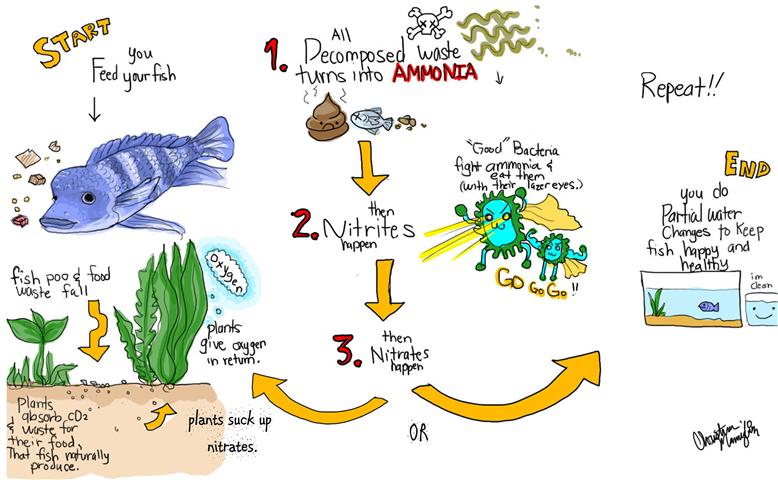 START
you
Feed your fish
fish poo & food
waste fall
Oxygen
plants
give oxygen
in return.
Plants
absorb CO2
& waste for
their food,
That fish naturally
produce.
plants suck up
nitrates.
1. All
Decomposed waste
turns into AMMONIA
"Good" Bacteria
fight ammonia &
eat them
(with their lazer eyes.)
GO GO GO!!
2. then
Nitrites
happen
3. then
Nitrates
happen
OR
Repeat!!
END
you do
Partial water
Changes to Keep
fish happy and
healthy
im
clean